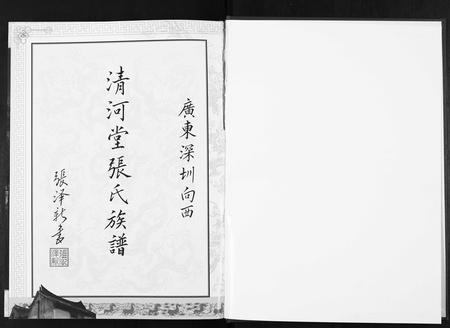 廣東深圳向西
清河堂張氏族譜
張泽新書